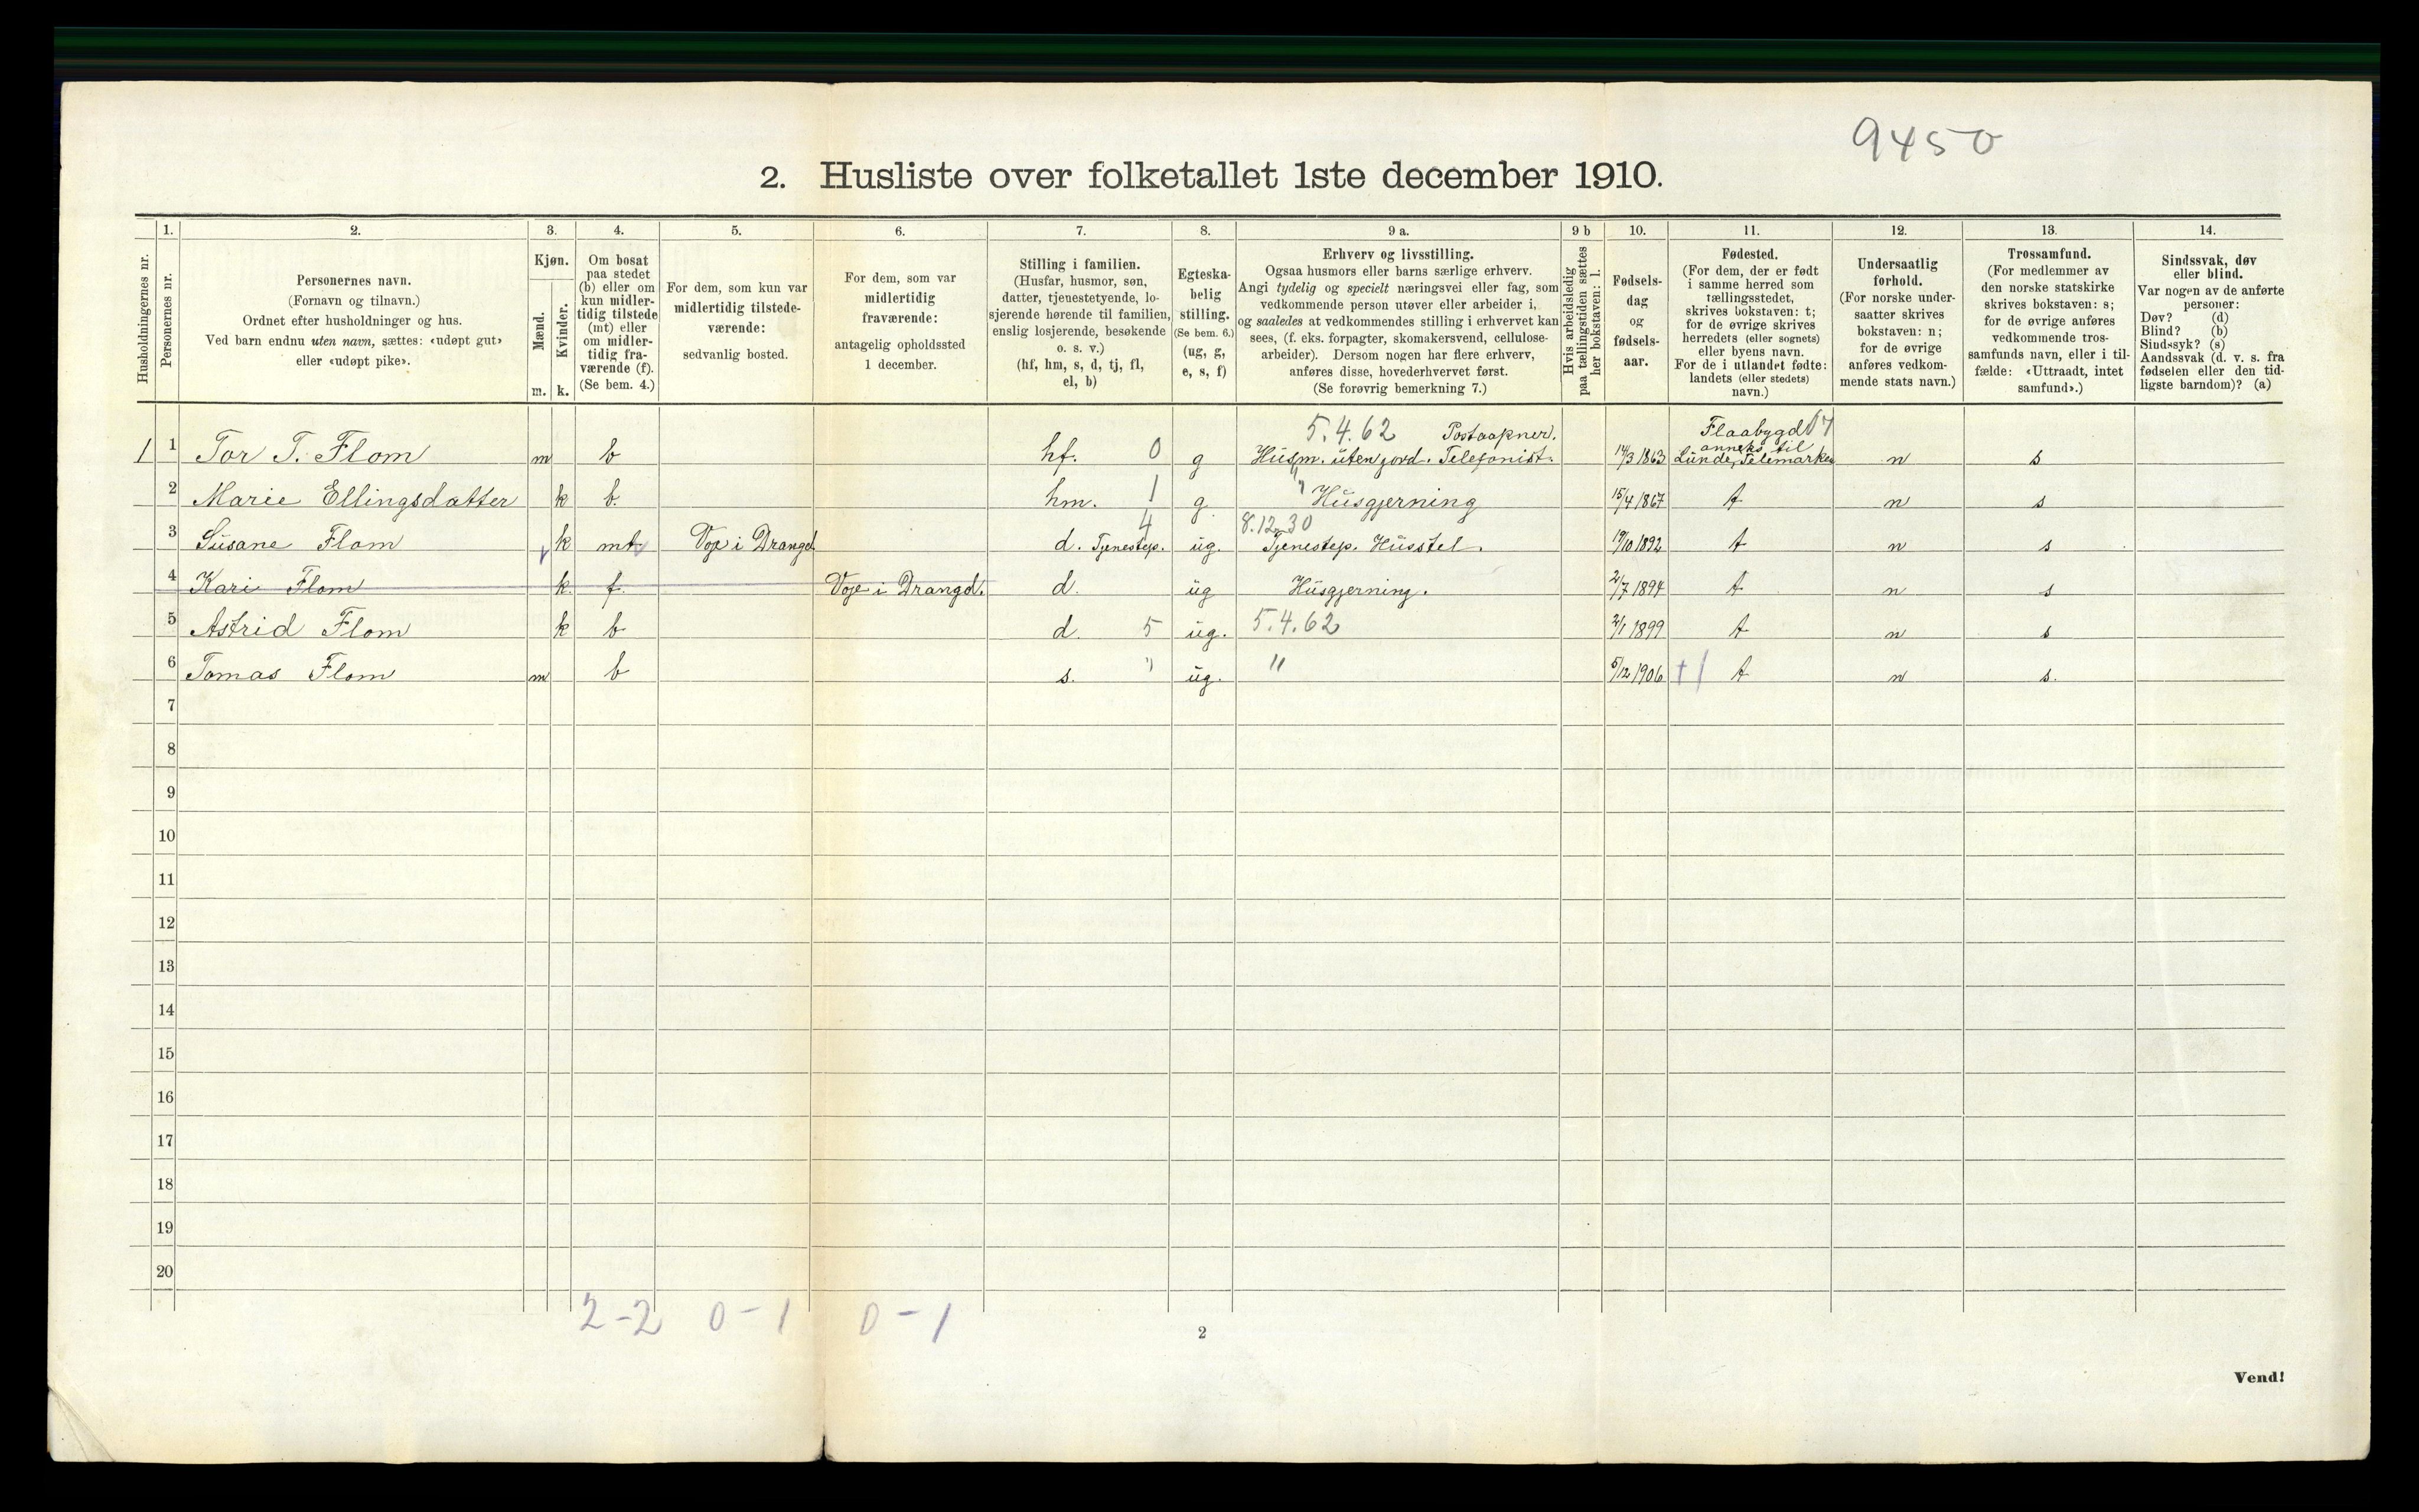 9450
2. Husliste over folketallet 1ste december 1910.
Husholdningernes nr.
1.
Personernes nr.
2.
Personernes navn.
(Fornavn og tilnavn.)
Ordnet efter husholdninger og hus.
Ved barn endnu uten navn, sættes: «udøpt gut»
eller «udøpt pike».
3.
Kjøn.
Mænd.
Kvinder.
m. k.
4.
Om bosat
paa stedet
(b) eller om
kun midler-
tidig tilstede
(mt) eller
om midler-
tidig fra-
værende (f).
(Se bem. 4.)
5.
For dem, som kun var
midlertidig tilstede-
værende:
sedvanlig bosted.
6.
For dem, som var
midlertidig
fraværende:
antagelig opholdssted
1 december.
7.
Stilling i familien.
(Husfar, husmor, søn,
datter, tjenestetyende, lo-
sjerende hørende til familien,
enslig losjerende, besøkende
o. s. v.)
(hf, hm, s, d, tj, fl,
el, b)
8.
Egteska-
belig
stilling.
(Se bem. 6.)
(ug, g,
e, s, f)
9 a.
Erhverv og livsstilling.
Ogsaa husmors eller barns særlige erhverv.
Angi tydelig og specielt næringsvei eller fag, som
vedkommende person utøver eller arbeider i,
og saaledes at vedkommendes stilling i erhvervet kan
sees, (f. eks. forpagter, skomakersvend, cellulose-
arbeider). Dersom nogen har flere erhverv,
anføres disse, hovederhvervet først.
(Se forøvrig bemerkning 7.)
9 b
Hvis arbeidsledig
paa tællingstiden sættes
her bokstaven: l.
10.
Fødsels-
dag
og
fødsels-
aar.
11.
Fødested.
(For dem, der er født
i samme herred som
tællingsstedet,
skrives bokstaven: t;
for de øvrige skrives
herredets (eller sognets)
eller byens navn.
For de i utlandet fødte:
landets (eller stedets)
navn.)
12.
Undersaatlig
forhold.
(For norske under-
saatter skrives
bokstaven: n;
for de øvrige
anføres vedkom-
mende stats navn.)
13.
Trossamfund.
(For medlemmer av
den norske statskirke
skrives bokstaven: s;
for de øvrige anføres
vedkommende tros-
samfunds navn, eller i til-
fælde: «Uttraadt, intet
samfund».)
14.
Sindssvak, døv
eller blind.
Var nogen av de anførte
personer:
Døv? (d)
Blind? (b)
Sindssyk? (s)
Aandssvak (d. v. s. fra
fødselen eller den tid-
ligste barndom)? (a)
5.4.62 Postaapner. Flaabygd
anneks til
1 1 Tor T. Flom m b hf. 0 g Husm. uten jord. Telefonist. 14/3 1863 Lunde, Telemarken n s
2 Marie Ellingsdatter k b. hm. 1 g " Husgjerning 15/4 1867 t n s
4 8.12.30
3 Susane Flom k mt Voje i Drangd. d. Tjenestep. ug. Tjenestep. Husstel. 19/10 1892 t n s
4 Kari Flom k. f. Voje i Drangd. d. ug Husgjerning. 2/7 1894 t n s
5 Astrid Flom k b d. 5 ug. 5.4.62 2/1 1899 t n s
6 Tomas Flom m b s. " ug. " 5/12 1906 t n s.
7
8
9
10
11
12
13
14
15
16
17
18
19
20
2-2 0-1 0-1
2
Vend!